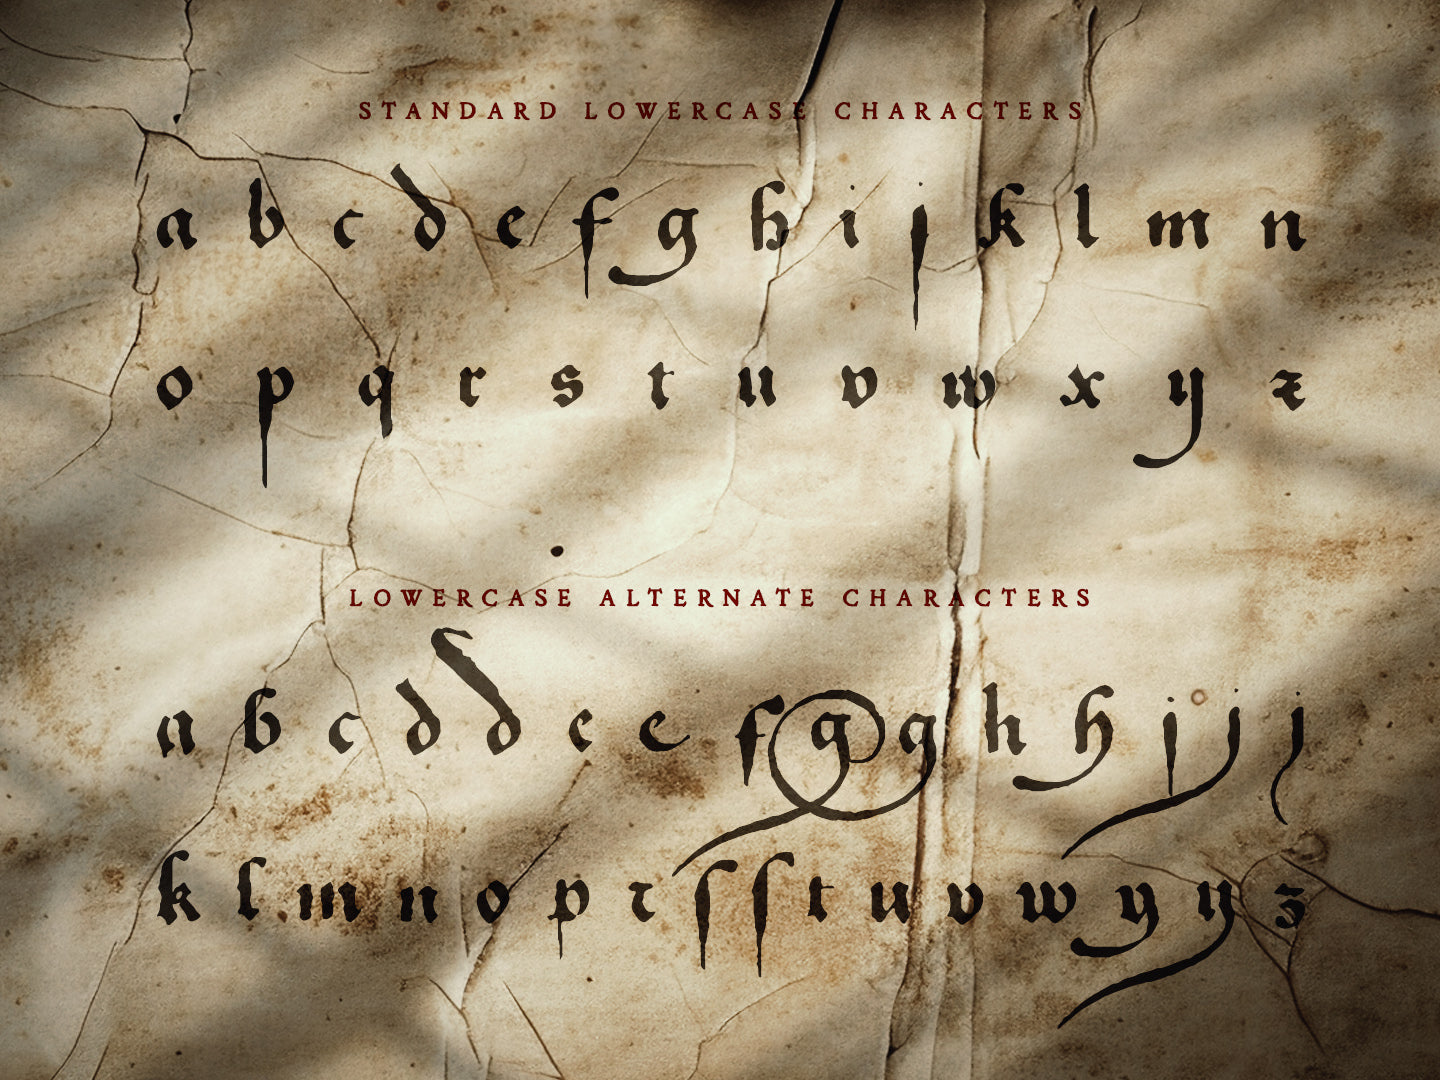 STANDARD LOWERCASE CHARACTERS
a b c d e f g h i j k l m n
o p q r s t u v w x y z
LOWERCASE ALTERNATE CHARACTERS
a b c d d e e f g g h h j j j
k l m n o p r ſ ſ t u v w y y z